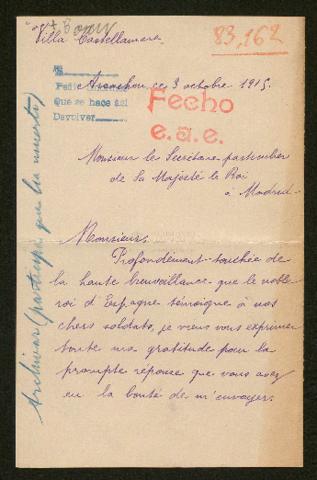 Villa Castellamare
83,162
Arcachon ce 3 octobre 1915.
Que se hace así
Devolver
Fecho
e.a.e.
Monsieur le Secrétaire particulier
de Sa Majesté le Roi
à Madrid.
Monsieur,
Profondément touchée de
la haute bienveillance que le noble
roi d'Espagne témoigne à nos
chers soldats, je viens vous exprimer
toute ma gratitude pour la
prompte réponse que vous avez
eu la bonté de m'envoyer.
Archivar (participa que ha muerto)